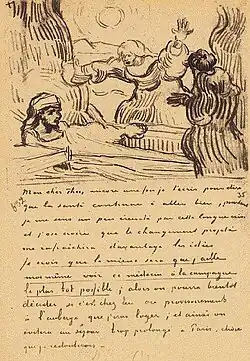 Mon cher Theo, encore une fois je t'écris pour dire
que la santé continue à aller bien, pourtant
je me sens un peu éreinté par cette longue crise
et j'ose croire que le changement projeté
me rafraichira davantage les idées
Je crois que le mieux sera que j'aille
moi même voir ce médecin à la campagne
le plus tôt possible; alors on pourra bientôt
décider si c'est chez lui ou provisoirement
à l'auberge que j'irai loger; et ainsi on
évitera un séjour trop prolongé à Paris, chose
que je redouterais.